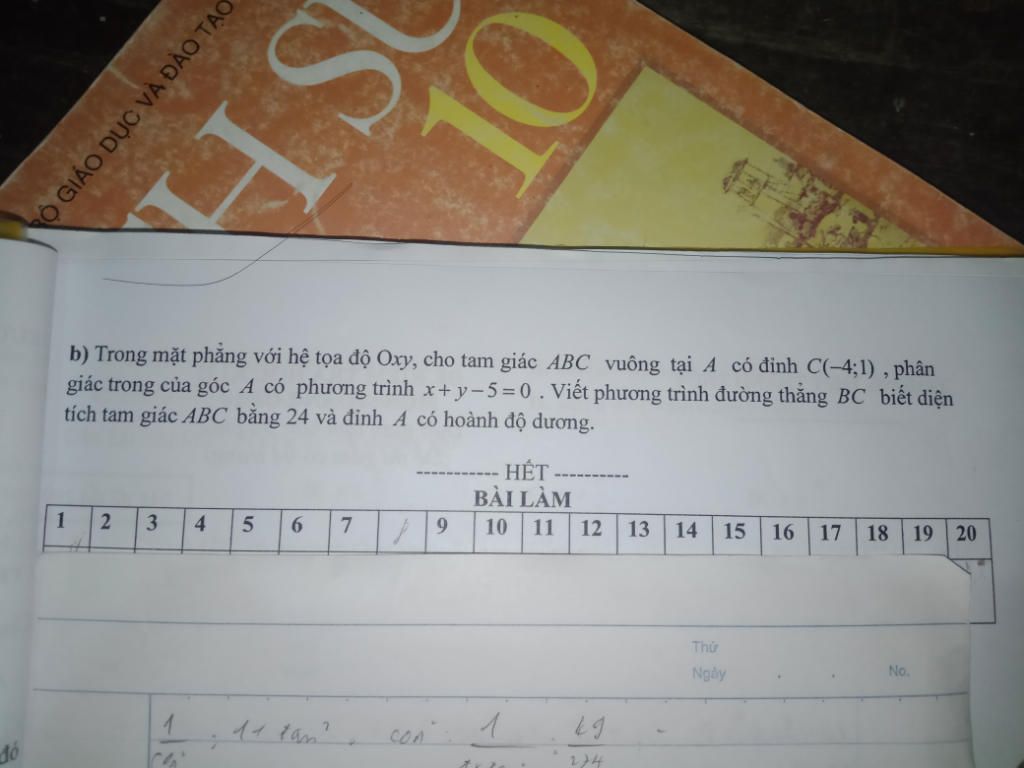 BỘ GIÁO DỤC VÀ ĐÀO TẠO
H SỬ
10
b) Trong mặt phẳng với hệ tọa độ Oxy, cho tam giác ABC vuông tại A có đỉnh C(–4;1) , phân
giác trong của góc A có phương trình x + y − 5 = 0 . Viết phương trình đường thẳng BC biết diện
tích tam giác ABC bằng 24 và đỉnh A có hoành độ dương.
----------- HẾT ----------
BÀI LÀM
1 2 3 4 5 6 7 9 10 11 12 13 14 15 16 17 18 19 20
Thứ
Ngày . . No.
1 ; 1+ tan² 1
đó